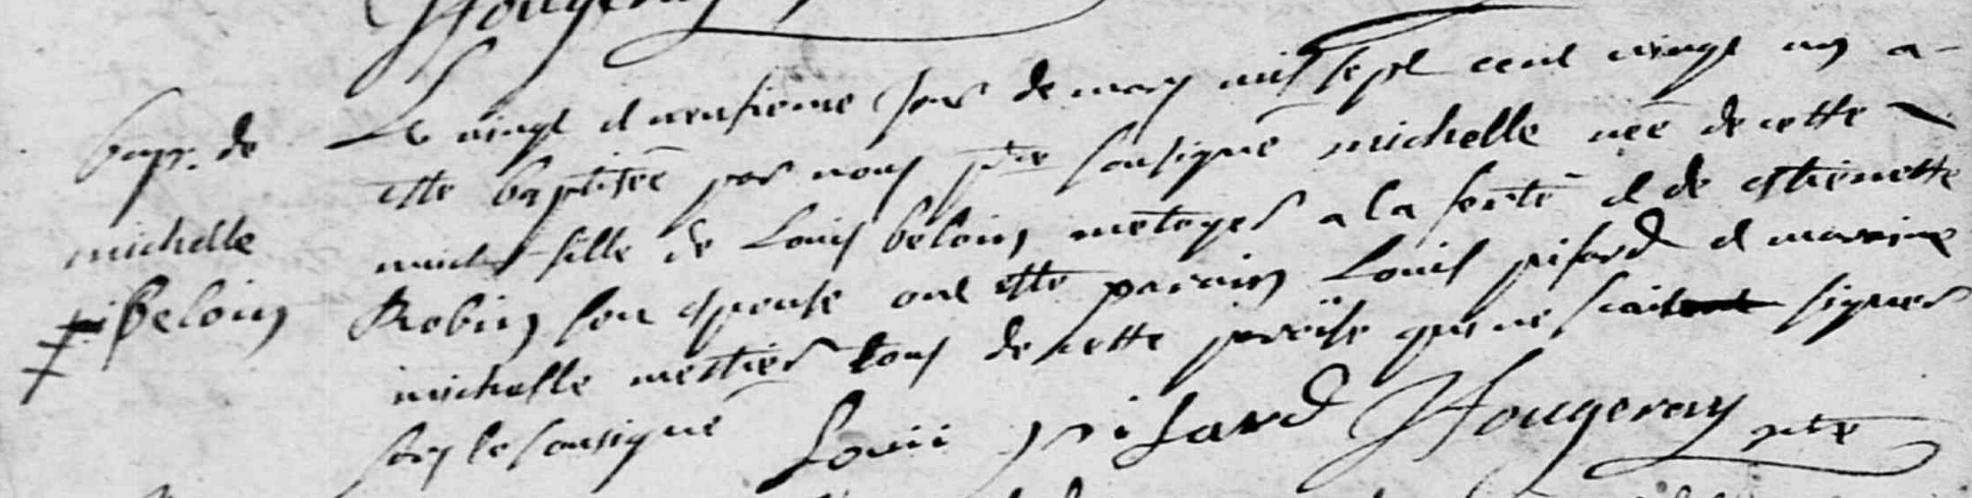 bapt. de
michelle
Beloin
Le vingt et unsieme jour de may mil sept cent vingt un a
este baptisée par nous ptre sousigné michelle née de cette
nuict fille de Louis beloin metoyer a la ferté et de estienette
Robin son epouse ont este parain Louis pisard et maraine
michelle mestier tous de cette paroisse qui ne scait signer
le sousigné Louii pisard Fougeray ptre